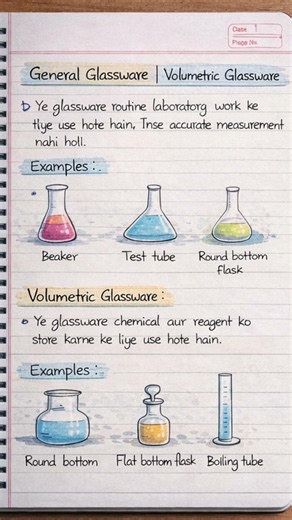 Date 1
Page No.
General Glassware | Volumetric Glassware
Ye glassware routine laboratorg work ke
tiye use hote hain, Tnse accurate measurement
nahi holl.
Examples :.
Beaker
Test tube
Round bottom
flask
Volumetric Glassware :
Ye glassware chemical aur reagent ko
store karne ke liye use hote hain.
Examples :.
Round bottom
Flat bottom flask
Boiling tube